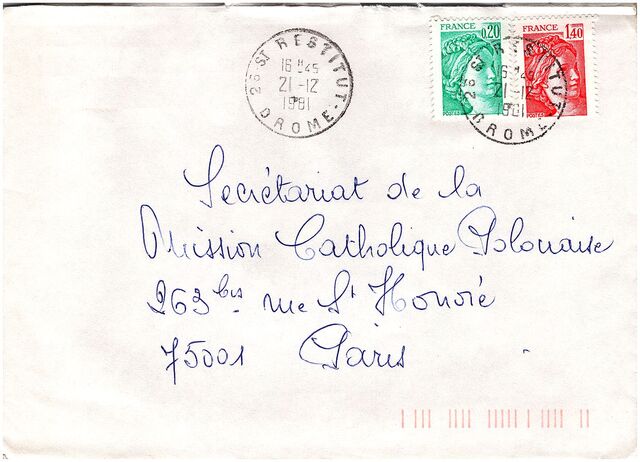 26 ST RESTITUT
16 H 45
21-12
1981
DROME
FRANCE
0,20
FRANCE
1,40
POSTES
POSTES
26 ST RESTITUT
16 H 45
21-12
1981
DROME
Secrétariat de la
Mission Catholique Polonaise
263 bis rue St Honoré
75001 Paris